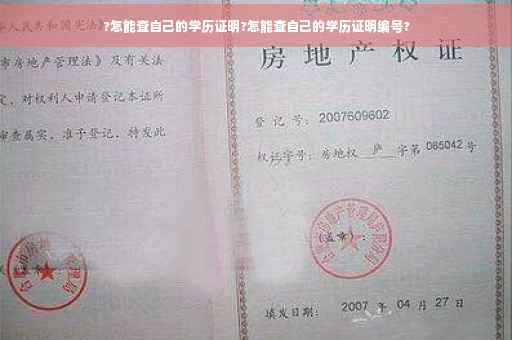 ?怎能查自己的学历证明?怎能查自己的学历证明编号?
人民共和国宪法》
市房地产管理法》及有关法
定，对权利人申请登记本证所
审查属实，准予登记，特发此
房地产权证
登记号：2007609602
权证字号：房地权 庐 字第 065042 号
(盖章)：
填发日期：2007 年 04 月 27 日